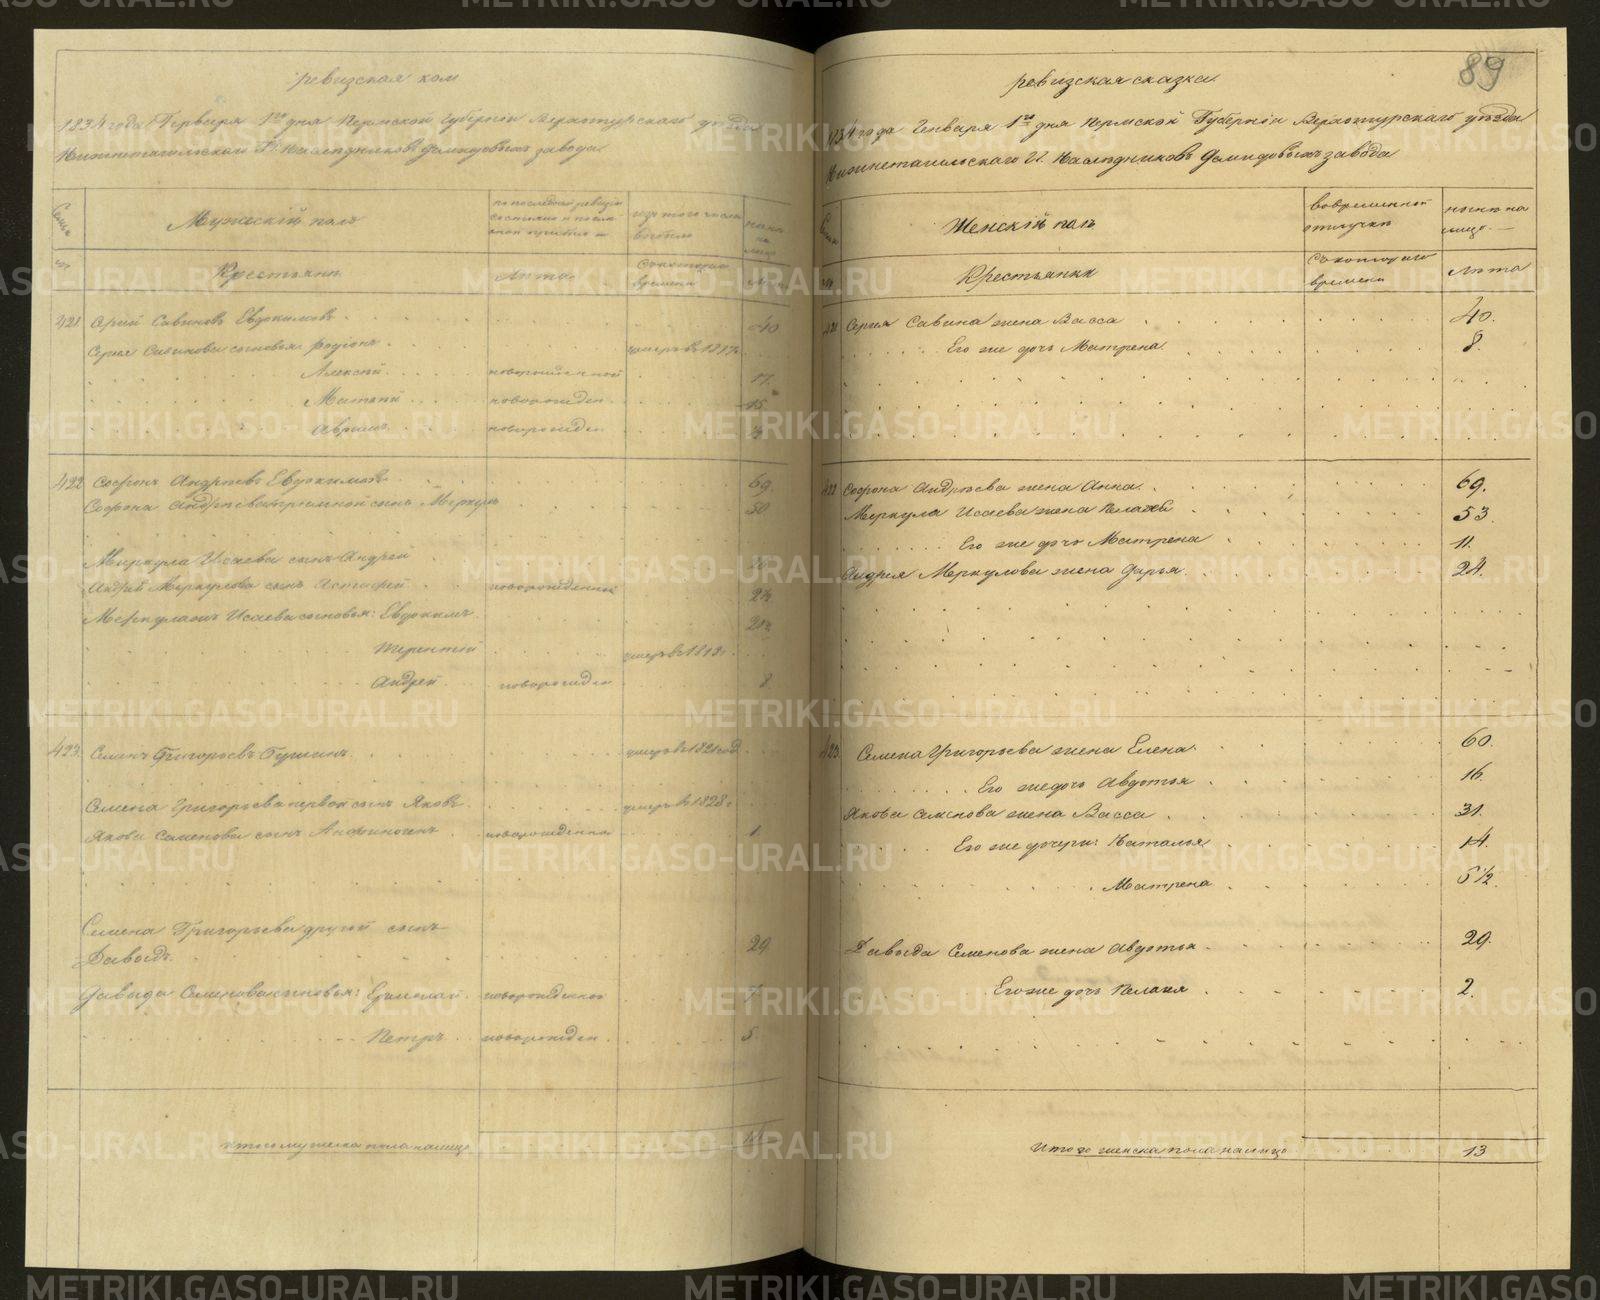 ревизская
1834 года Генваря 1го дня Пермской Губерніи Верхотурскаго уѣзда
Нижнетагильскаго Г. Наслѣдниковъ Демидовыхъ завода
Мужескій полъ
изъ того числа выбыло
Крестьяне
Лѣта
Съ котораго времени
421 Сергѣй Савиновъ Евдокимовъ 40
Сергея Савинова сыновья Родіонъ умеръ в 1817
Алексей новорожденной 17.
Матвѣй новорожден 15.
Аврамъ новорожден
422 Софронъ Андреевъ Евдокимовъ 69.
Софрона Андреева приемной сынъ Меркулъ 50
Меркула Исаева сынъ Андрей
Андрей Меркулова сынъ новорожденной 2½
Меркула Исаева сыновья: Евдокимъ
Терентій умеръ в
Андрей новорожден 8
423. Семенъ Григорьевъ умеръ в 1821 год
Семена Григорьева первой сынъ Яковъ умеръ в 1828 г
Якова Семенова сынъ Анфиногенъ новорожденной 1.
Семена Григорьева другой сынъ
Давыдъ. 29
Давыда Семенова сыновья: Ермолай новорожденной 7
Петръ новорожден 5
Итого мужеска пола налицо
89
ревизская сказка
1834 года Генваря 1го дня Пермской Губерніи Верхотурскаго уѣзда
Нижнетагильскаго Г. Наслѣдниковъ Демидовыхъ завода
Женскій полъ
во временной отлучке
ныне на лицо
Крестьянки
Съ котораго времени
Лѣта
421 Сергея Савина жена Васса 40.
Его же дочь Матрена 8.
422 Софрона Андреева жена Анна 69.
Меркула Исаева жена Пелагея 53.
Его же дочь Матрена 11.
Андрея Меркулова жена Дарья 24.
423. Семена Григорьева жена Елена 60.
Его же дочь Авдотья 16.
Якова Семенова жена Васса 31.
Его же дочери: Наталья 14.
Матрена 5½.
Давыда Семенова жена Авдотья 29.
Его же дочь Пелагея 2.
Итого женска пола налицо 13
METRIKI.GASO-URAL.RU